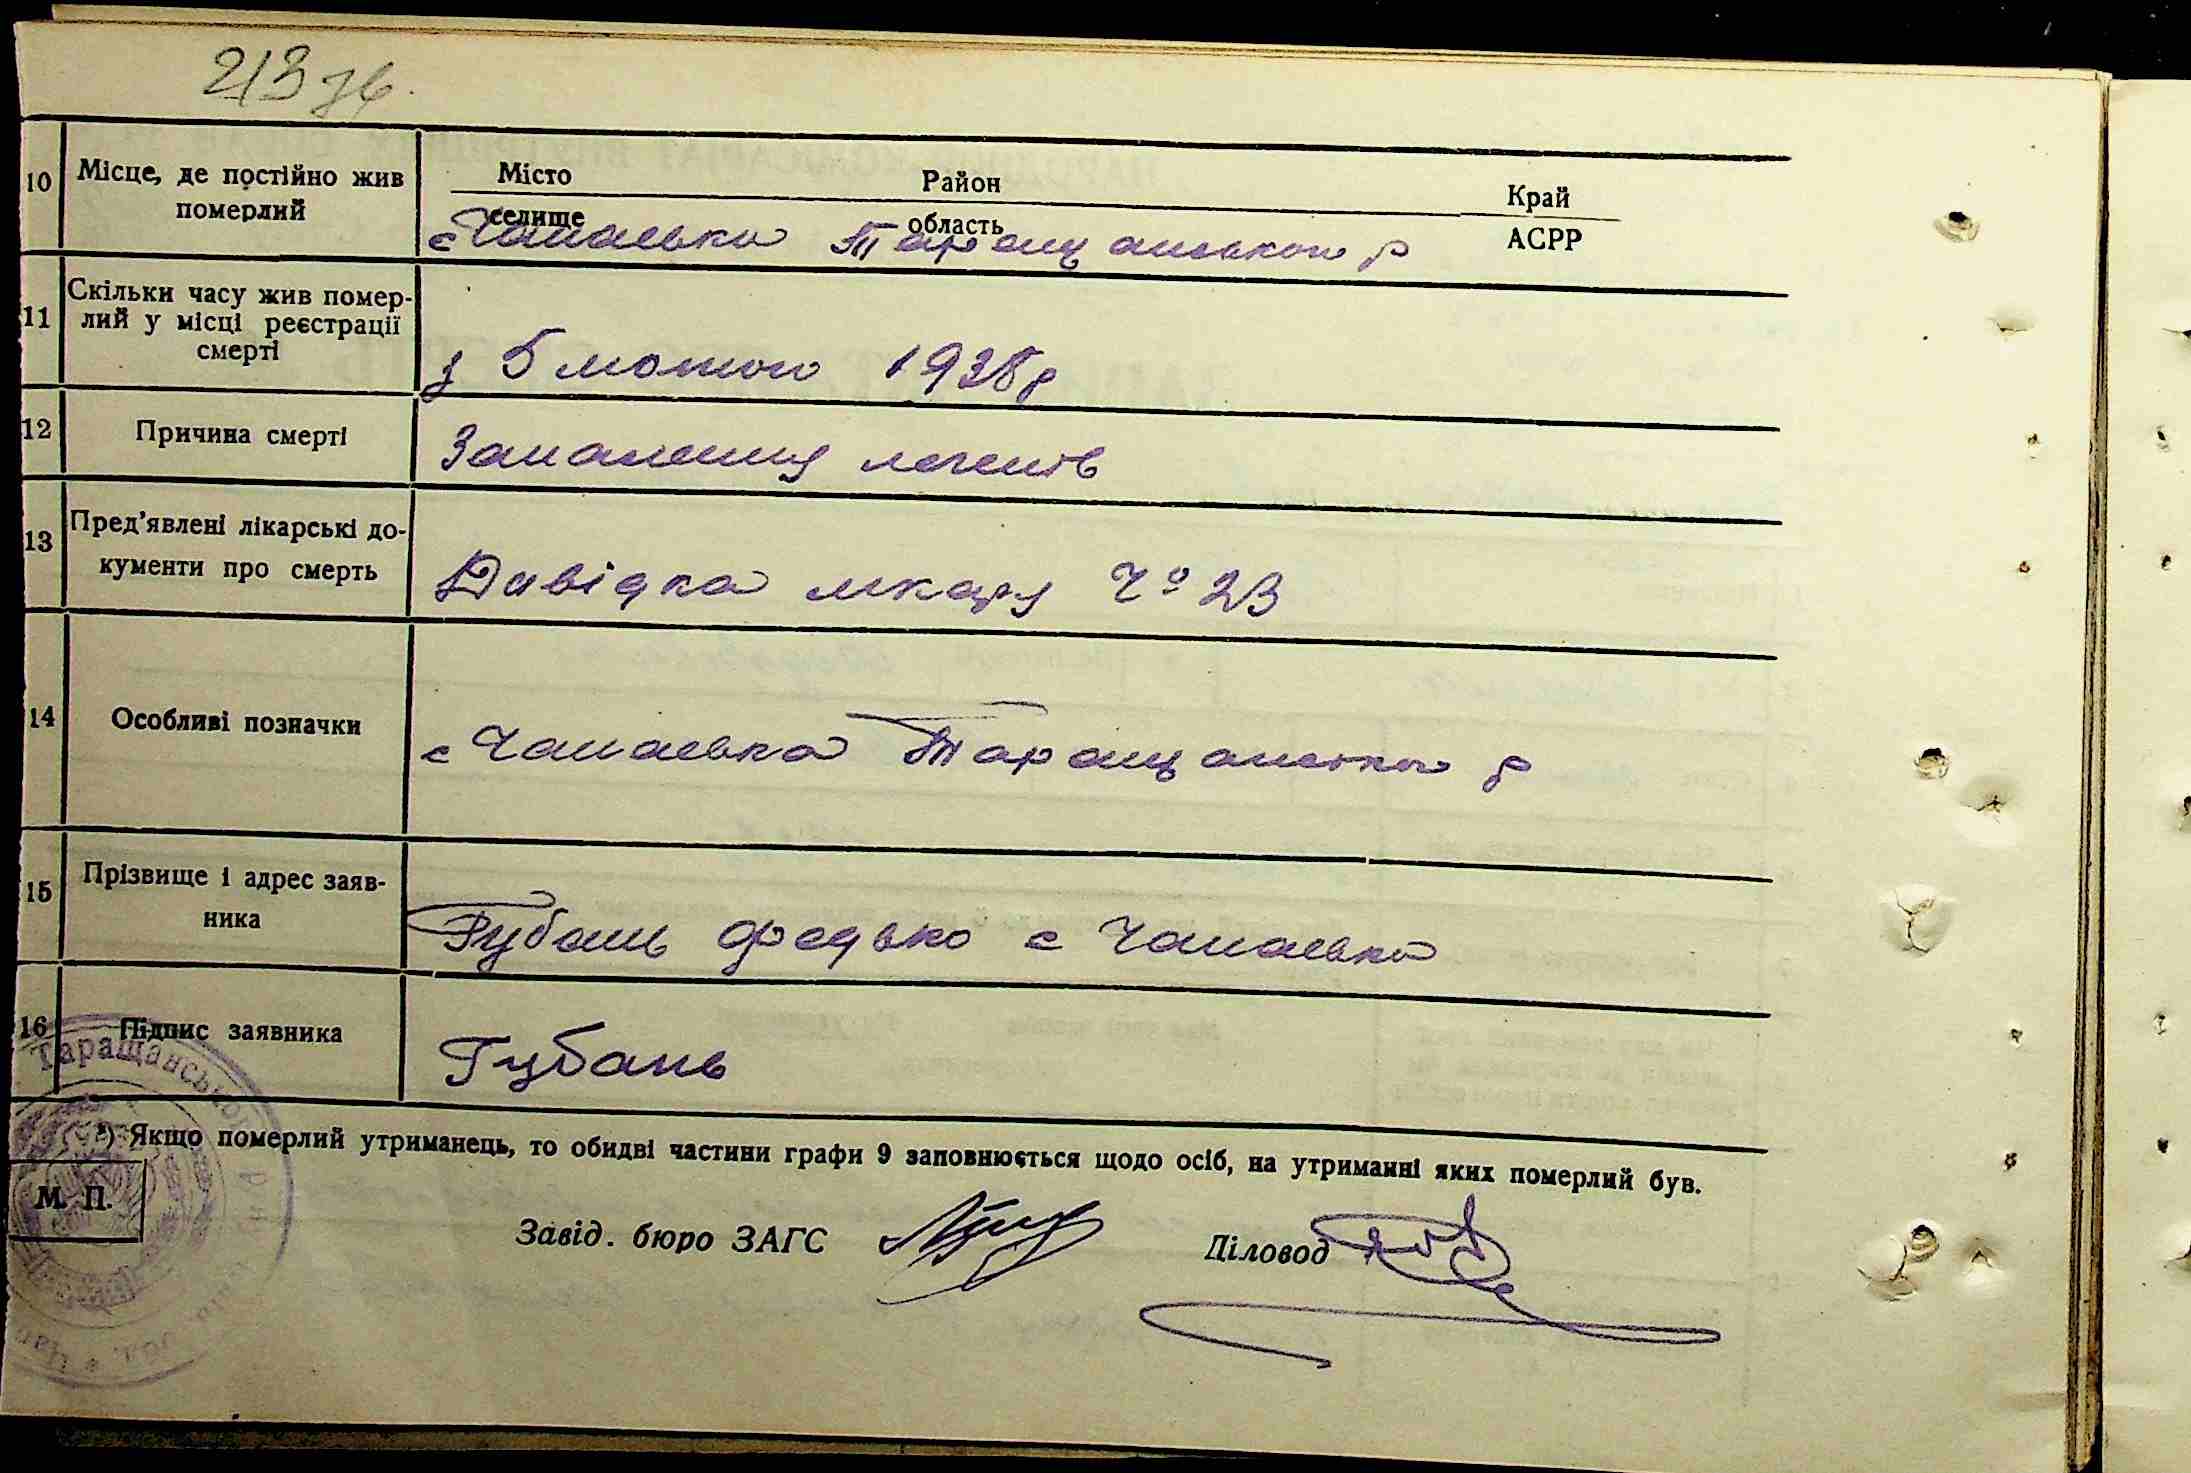 213 зв.
10 Місце, де постійно жив
померлий
Місто Район Край
селище область АСРР
с Чапаєвка Таращанського р
11 Скільки часу жив помер-
лий у місці реєстрації
смерті
з 5 лютого 1938 р
12 Причина смерті
Запалення легенів
13 Пред'явлені лікарські до-
кументи про смерть
Довідка лікаря Ч° 23
14 Особливі позначки
с Чапаєвка Таращансько р
15 Прізвище і адрес заяв-
ника
Рубань Федько с Чапаєвка
16 Підпис заявника
Рубань
*) Якщо померлий утриманець, то обидві частини графи 9 заповнюється щодо осіб, на утриманні яких померлий був.
М. П.
Таращанськ
Завід. бюро ЗАГС Діловод